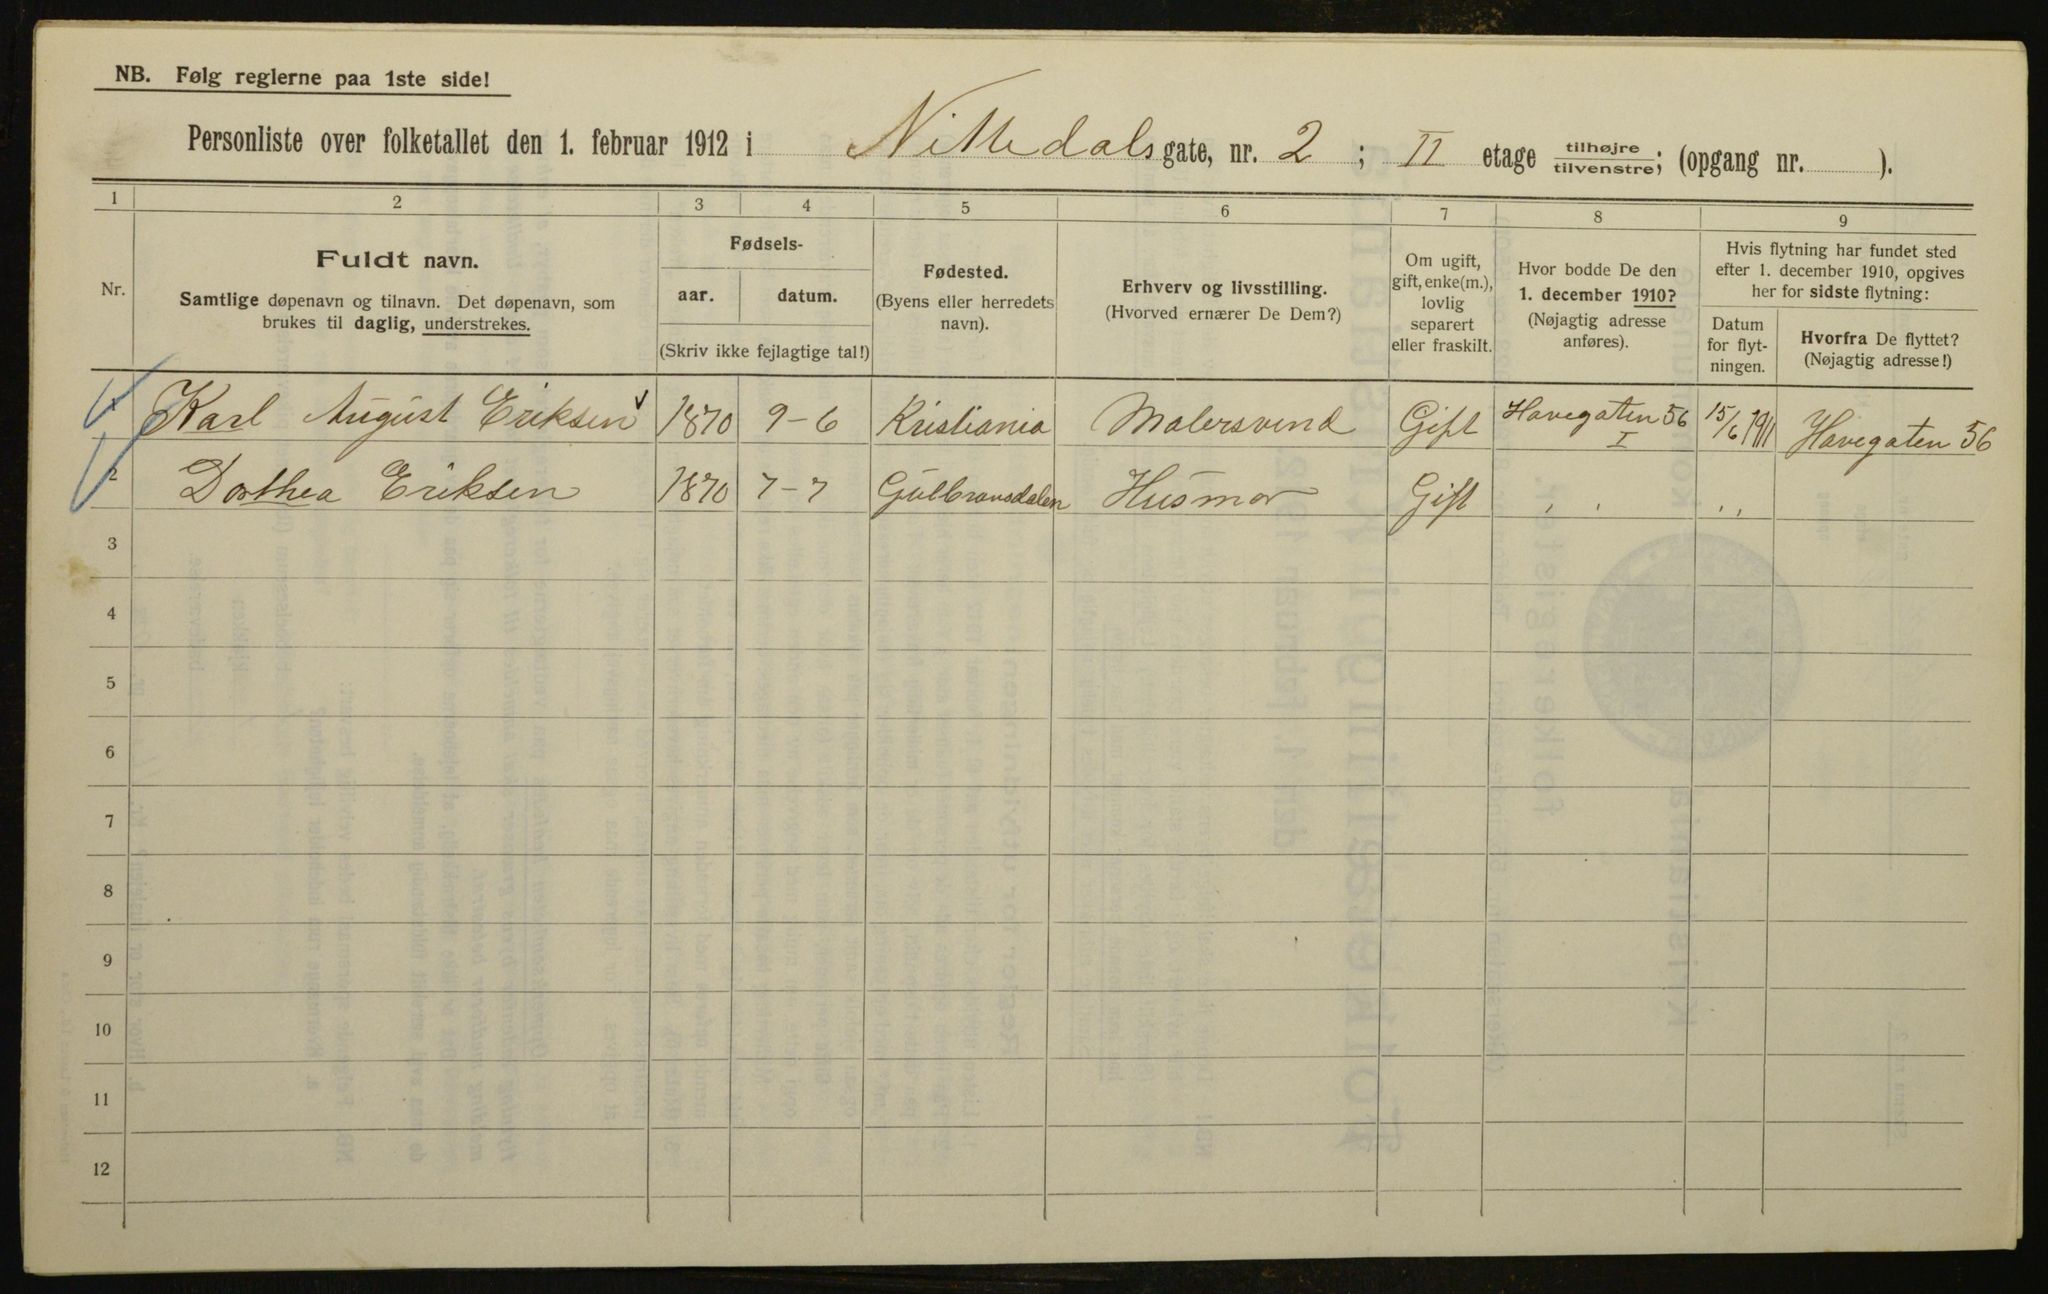 NB. Følg reglerne paa 1ste side!
Personliste over folketallet den 1. februar 1912 i Nittedals gate, nr. 2 ; II etage tilhøjre/tilvenstre; (opgang nr. ).
1 2 3 4 5 6 7 8 9
Nr.
Fuldt navn.
Samtlige døpenavn og tilnavn. Det døpenavn, som
brukes til daglig, understrekes.
Fødsels-
aar. datum.
(Skriv ikke fejlagtige tal!)
Fødested.
(Byens eller herredets
navn).
Erhverv og livsstilling.
(Hvorved ernærer De Dem?)
Om ugift,
gift, enke(m.),
lovlig
separert
eller fraskilt.
Hvor bodde De den
1. december 1910?
(Nøjagtig adresse
anføres).
Hvis flytning har fundet sted
efter 1. december 1910, opgives
her for sidste flytning:
Datum
for flyt-
ningen.
Hvorfra De flyttet?
(Nøjagtig adresse!)
1 Karl August Eriksen 1870 9-6 Kristiania Malersvend Gift Havegaten 56 I 15/6 1911 Havegaten 56
2 Dorthea Eriksen 1870 7-7 Gulbransdalen Husmor Gift " "
3
4
5
6
7
8
9
10
11
12